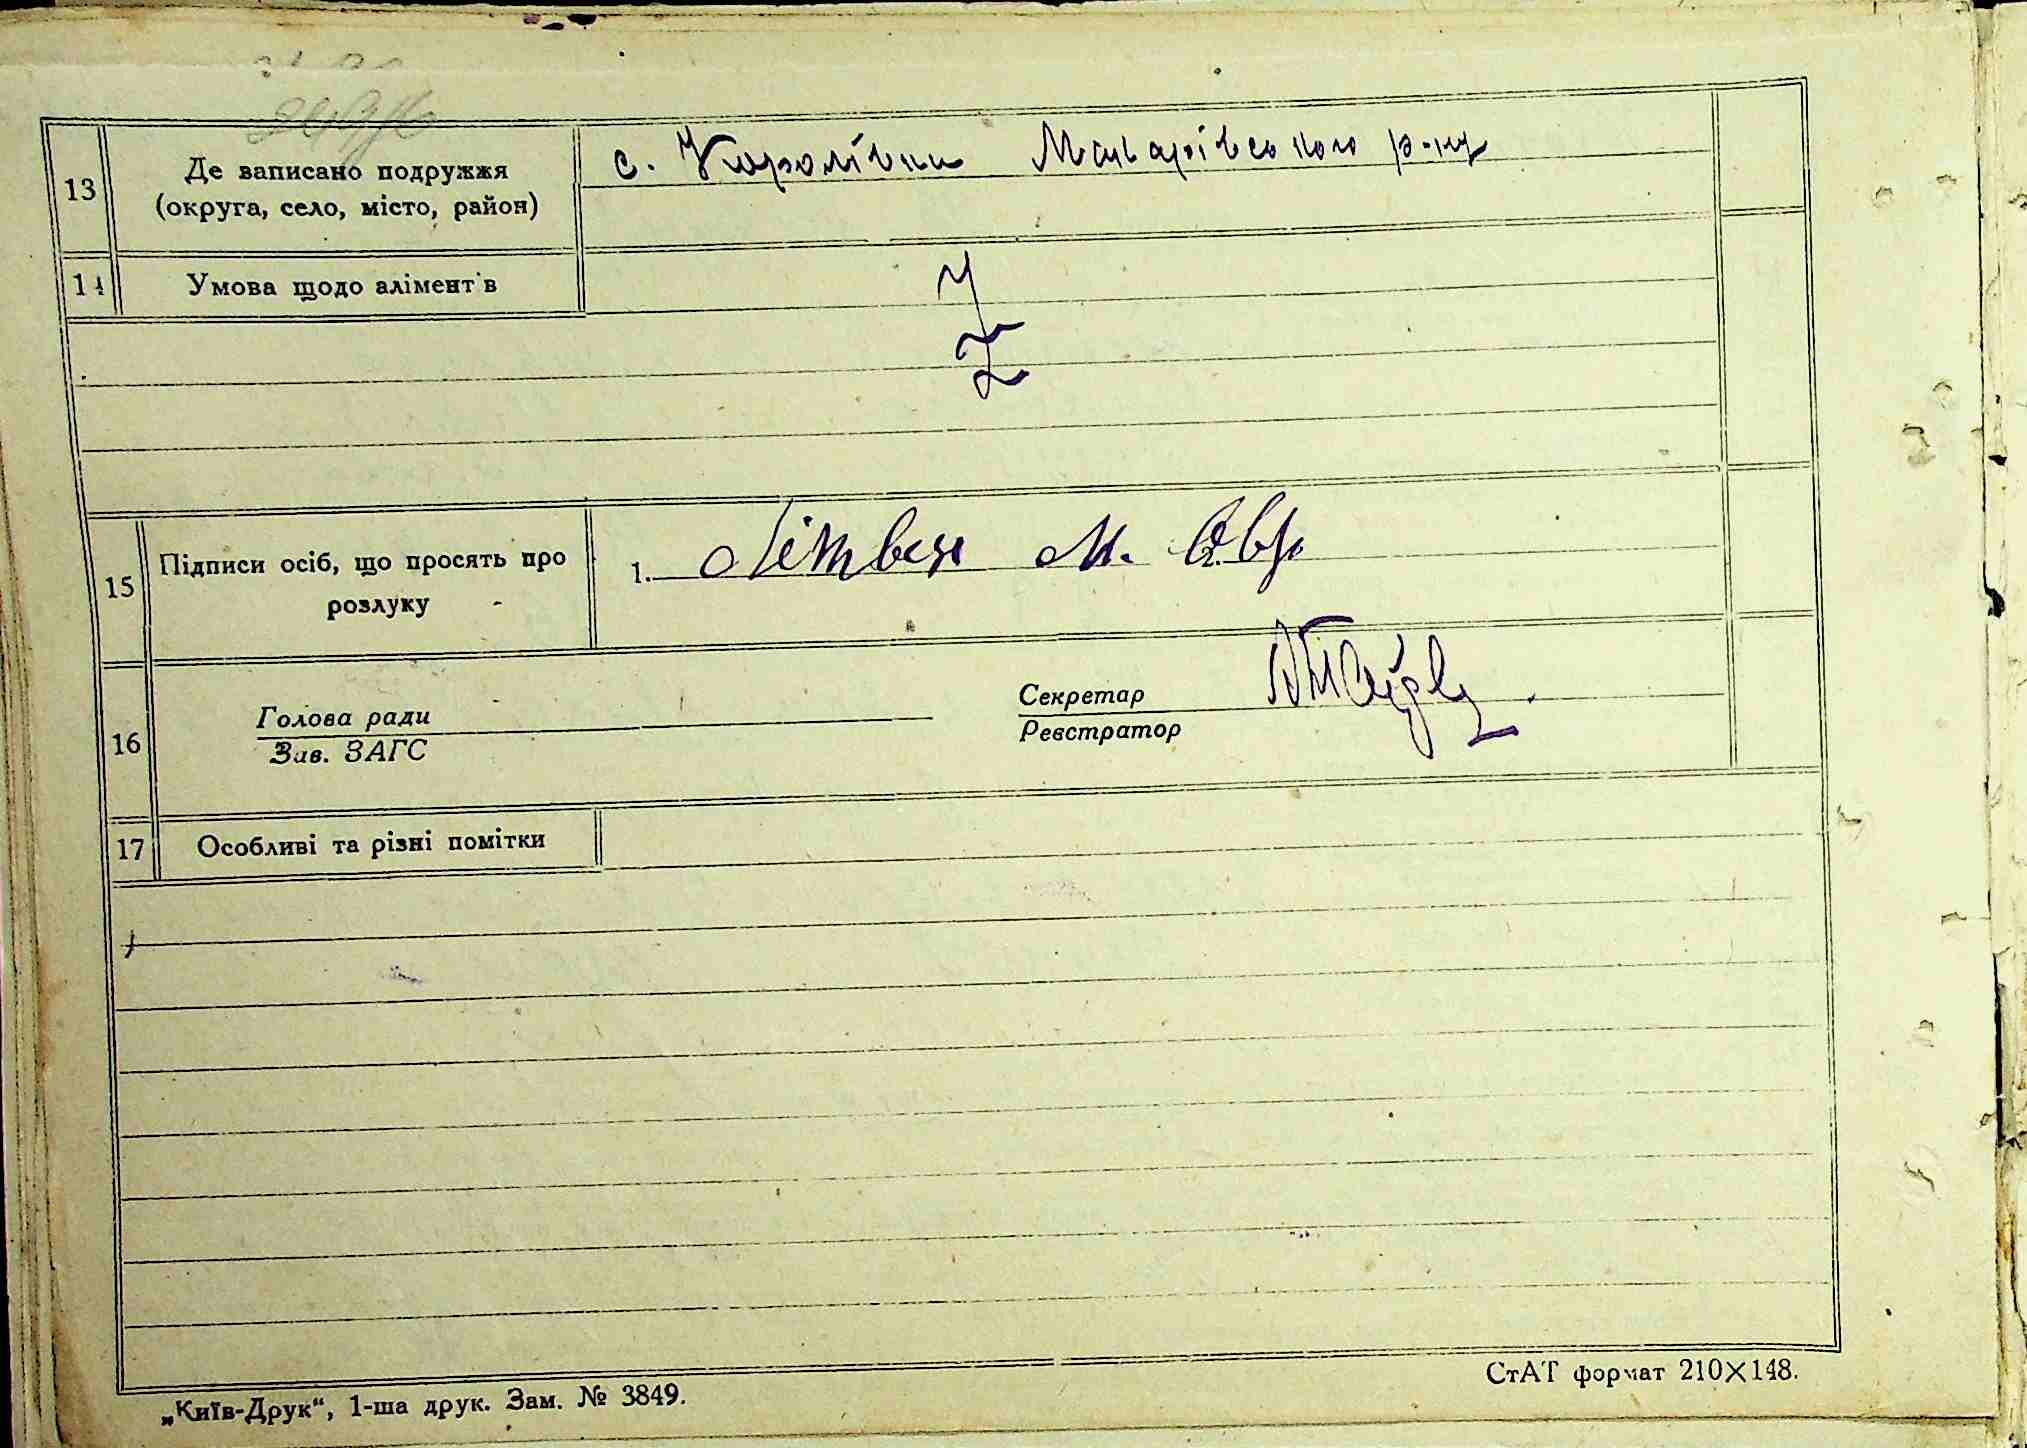 13
Де записано подружжя
(округа, село, місто, район)
с. Королівка Макарівського р-ну
14
Умова щодо алімент в
15
Підписи осіб, що просять про
розлуку
1. Літвен М.
16
Голова ради
Зав. ЗАГС
Секретар
Реєстратор
17
Особливі та різні помітки
„Київ-Друк“, 1-ша друк. Зам. № 3849.
СтАТ формат 210×148.